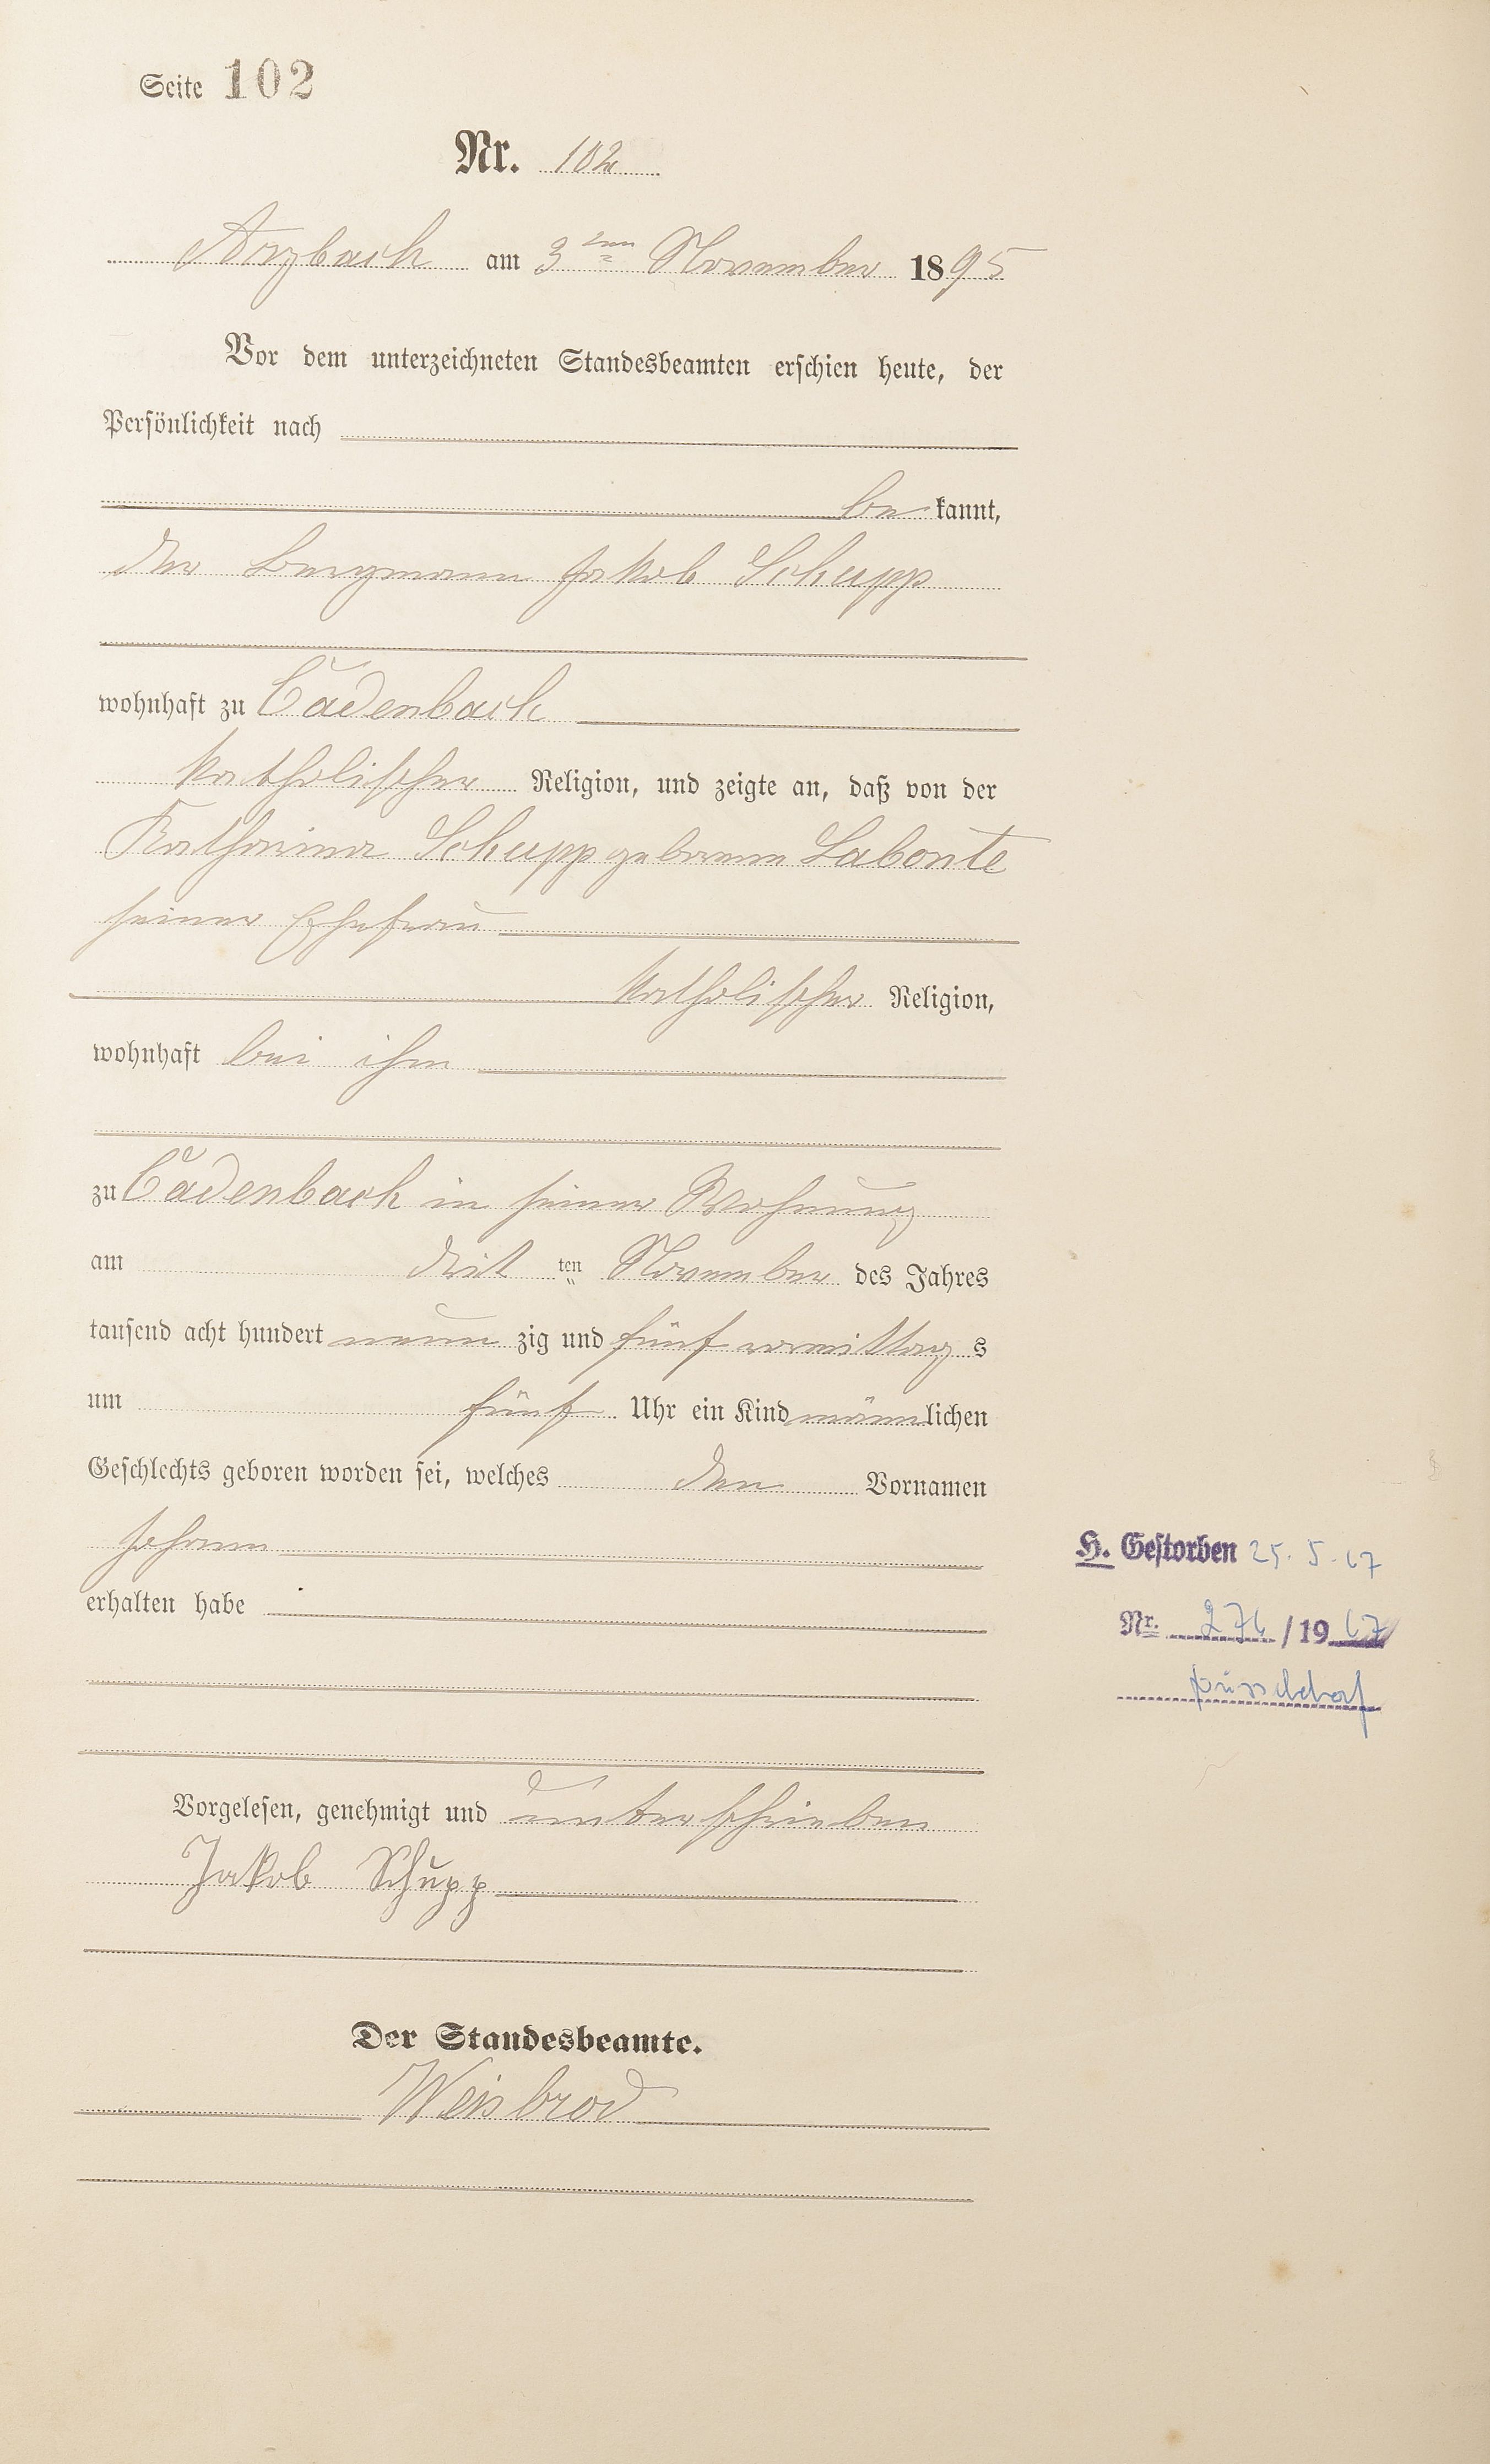 Seite 102
Nr. 102
Arzbach am 3ten November 1895
Vor dem unterzeichneten Standesbeamten erschien heute, der
Persönlichkeit nach
be kannt,
der Bergmann Jakob Schupp
wohnhaft zu Cadenbach
katholischer Religion, und zeigte an, daß von der
Katharina Schupp geborenen Labonte
seiner Ehefrau
katholischer Religion,
wohnhaft bei ihm
zu Cadenbach in seiner Wohnung
am drit ten November des Jahres
tausend acht hundert neun zig und fünf vormittag s
um fünf Uhr ein Kind männlichen
Geschlechts geboren worden sei, welches den Vornamen
Johann
erhalten habe
H. Gestorben 25. 5. 67
Nr. /19 67
Düsseldorf
Vorgelesen, genehmigt und unterschrieben
Jakob Schupp
Der Standesbeamte.
Weisbrod